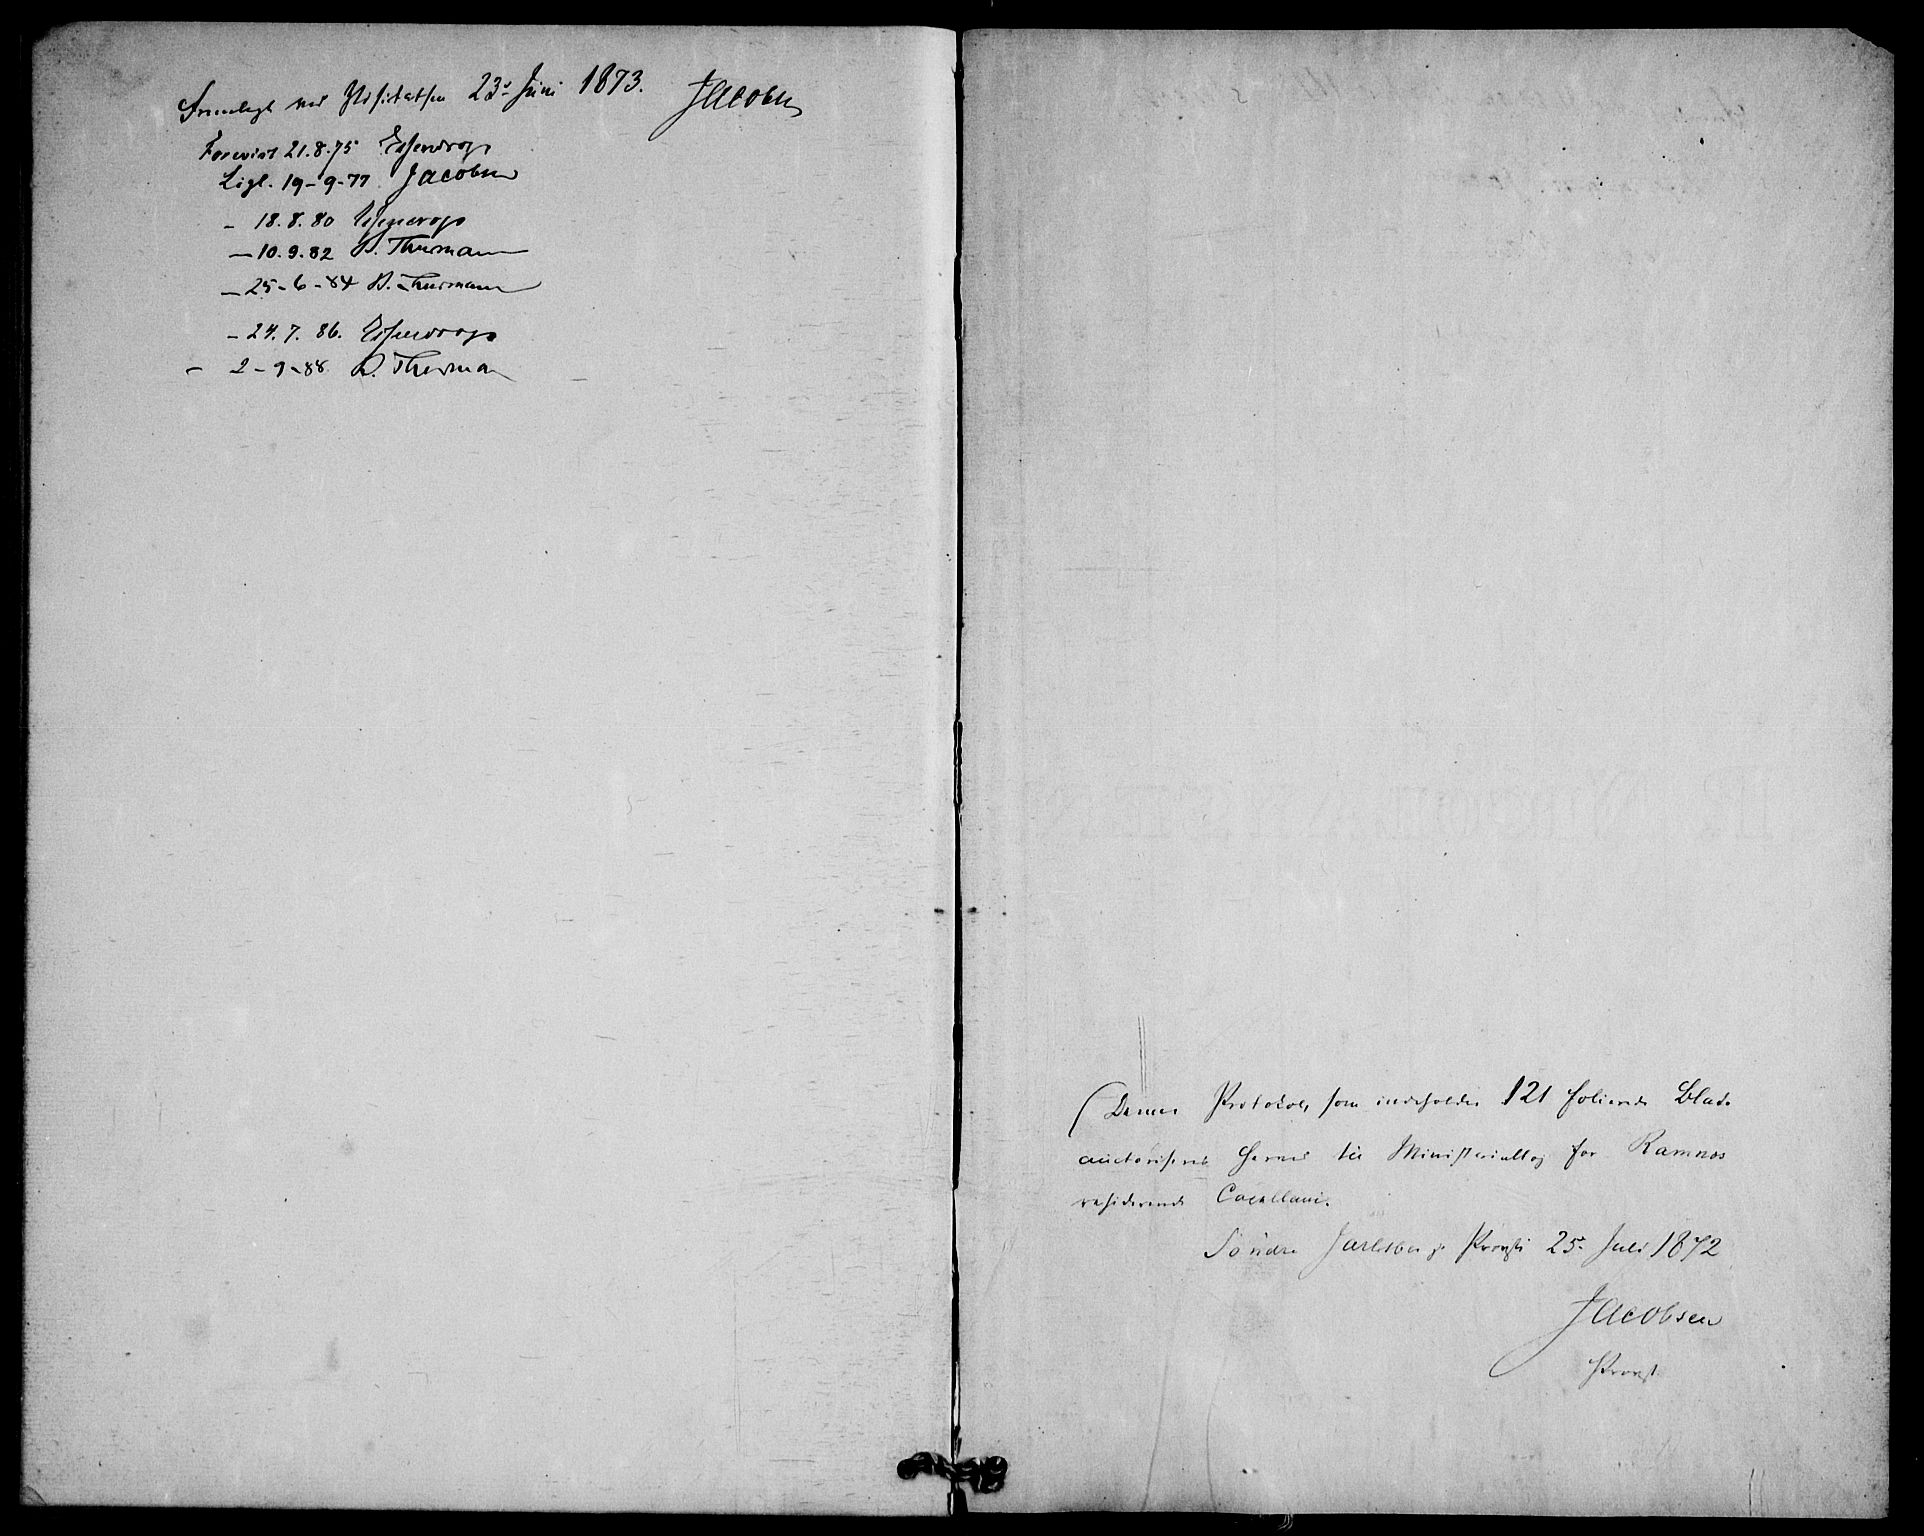 Fremlagt ved Visitatsen 23de Juni 1873. Jacobsen
Forevist 21.8.75 Essendrop
Ligl. 19-9-77 Jacobsen
- 18.8.80 Essendrop
- 10.9.82 D. Thurmann
- 25-6-84 D. Thurmann
- 24.7.86. Essendrop
- 2-9-88 D. Thurman
Denne Protocol, som indeholder 121 folierede Blade
auctoriseres herved til Ministerialbog for Ramnæs
residerende Capellani.
Söndre Jarlsbergs Provsti 25de Juli 1872
Jacobsen
Provst